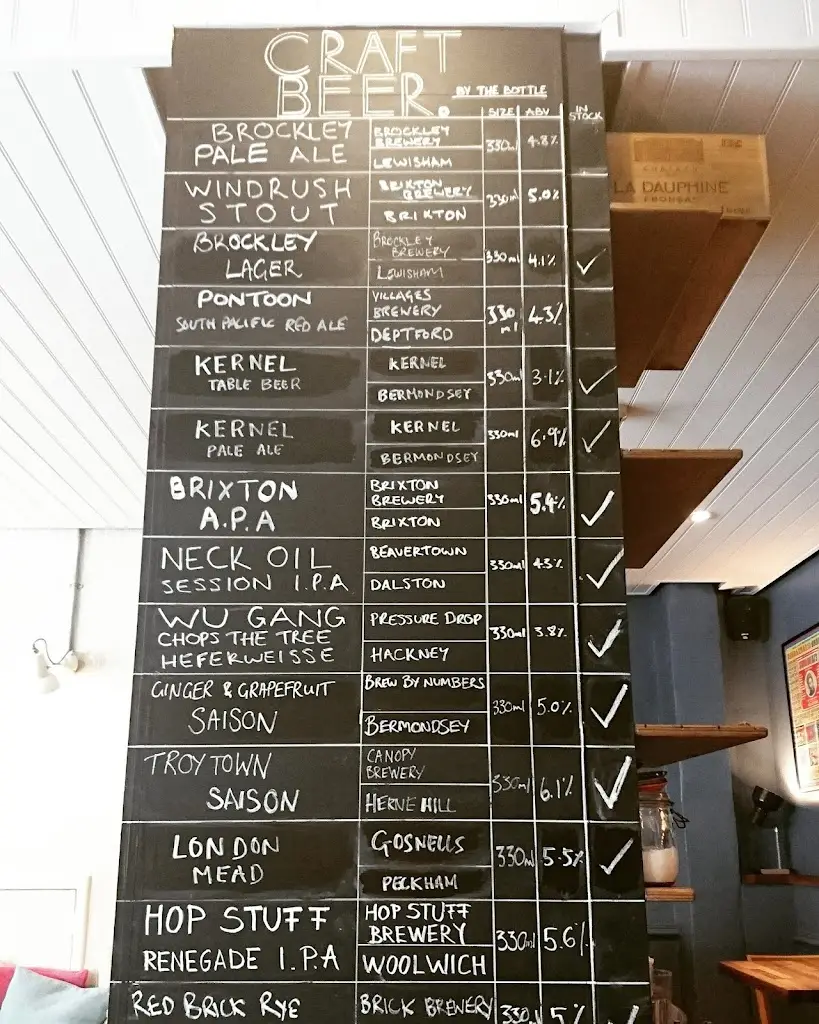 CRAFT
BEER.
BY THE BOTTLE
SIZE ABV IN STOCK
BROCKLEY
PALE ALE
BROCKLEY
BREWERY
LEWISHAM
330ml 4.8%
WINDRUSH
STOUT
BRIXTON
BREWERY
BRIXTON
330ml 5.0%
BROCKLEY
LAGER
BROCKLEY
BREWERY
LEWISHAM
330ml 4.1% ✓
PONTOON
SOUTH PACIFIC RED ALE
VILLAGES
BREWERY
DEPTFORD
330
ml
4.3%
KERNEL
TABLE BEER
KERNEL
BERMONDSEY
330ml 3.1% ✓
KERNEL
PALE ALE
KERNEL
BERMONDSEY
330ml 6.9% ✓
BRIXTON
A.P.A
BRIXTON
BREWERY
BRIXTON
330ml 5.4% ✓
NECK OIL
SESSION I.P.A
BEAVERTOWN
DALSTON
330ml 4.3% ✓
WU GANG
CHOPS THE TREE
HEFERWEISSE
PRESSURE DROP
HACKNEY
330ml 3.8% ✓
GINGER & GRAPEFRUIT
SAISON
BREW BY NUMBERS
BERMONDSEY
330ml 5.0% ✓
TROYTOWN
SAISON
CANOPY
BREWERY
HERNE HILL
330ml 6.1% ✓
LONDON
MEAD
GOSNELLS
PECKHAM
330ml 5.5% ✓
HOP STUFF
RENEGADE I.P.A
HOP STUFF
BREWERY
WOOLWICH
330ml 5.6%
RED BRICK RYE
BRICK BREWERY
330 5% ✓
LA DAUPHINE